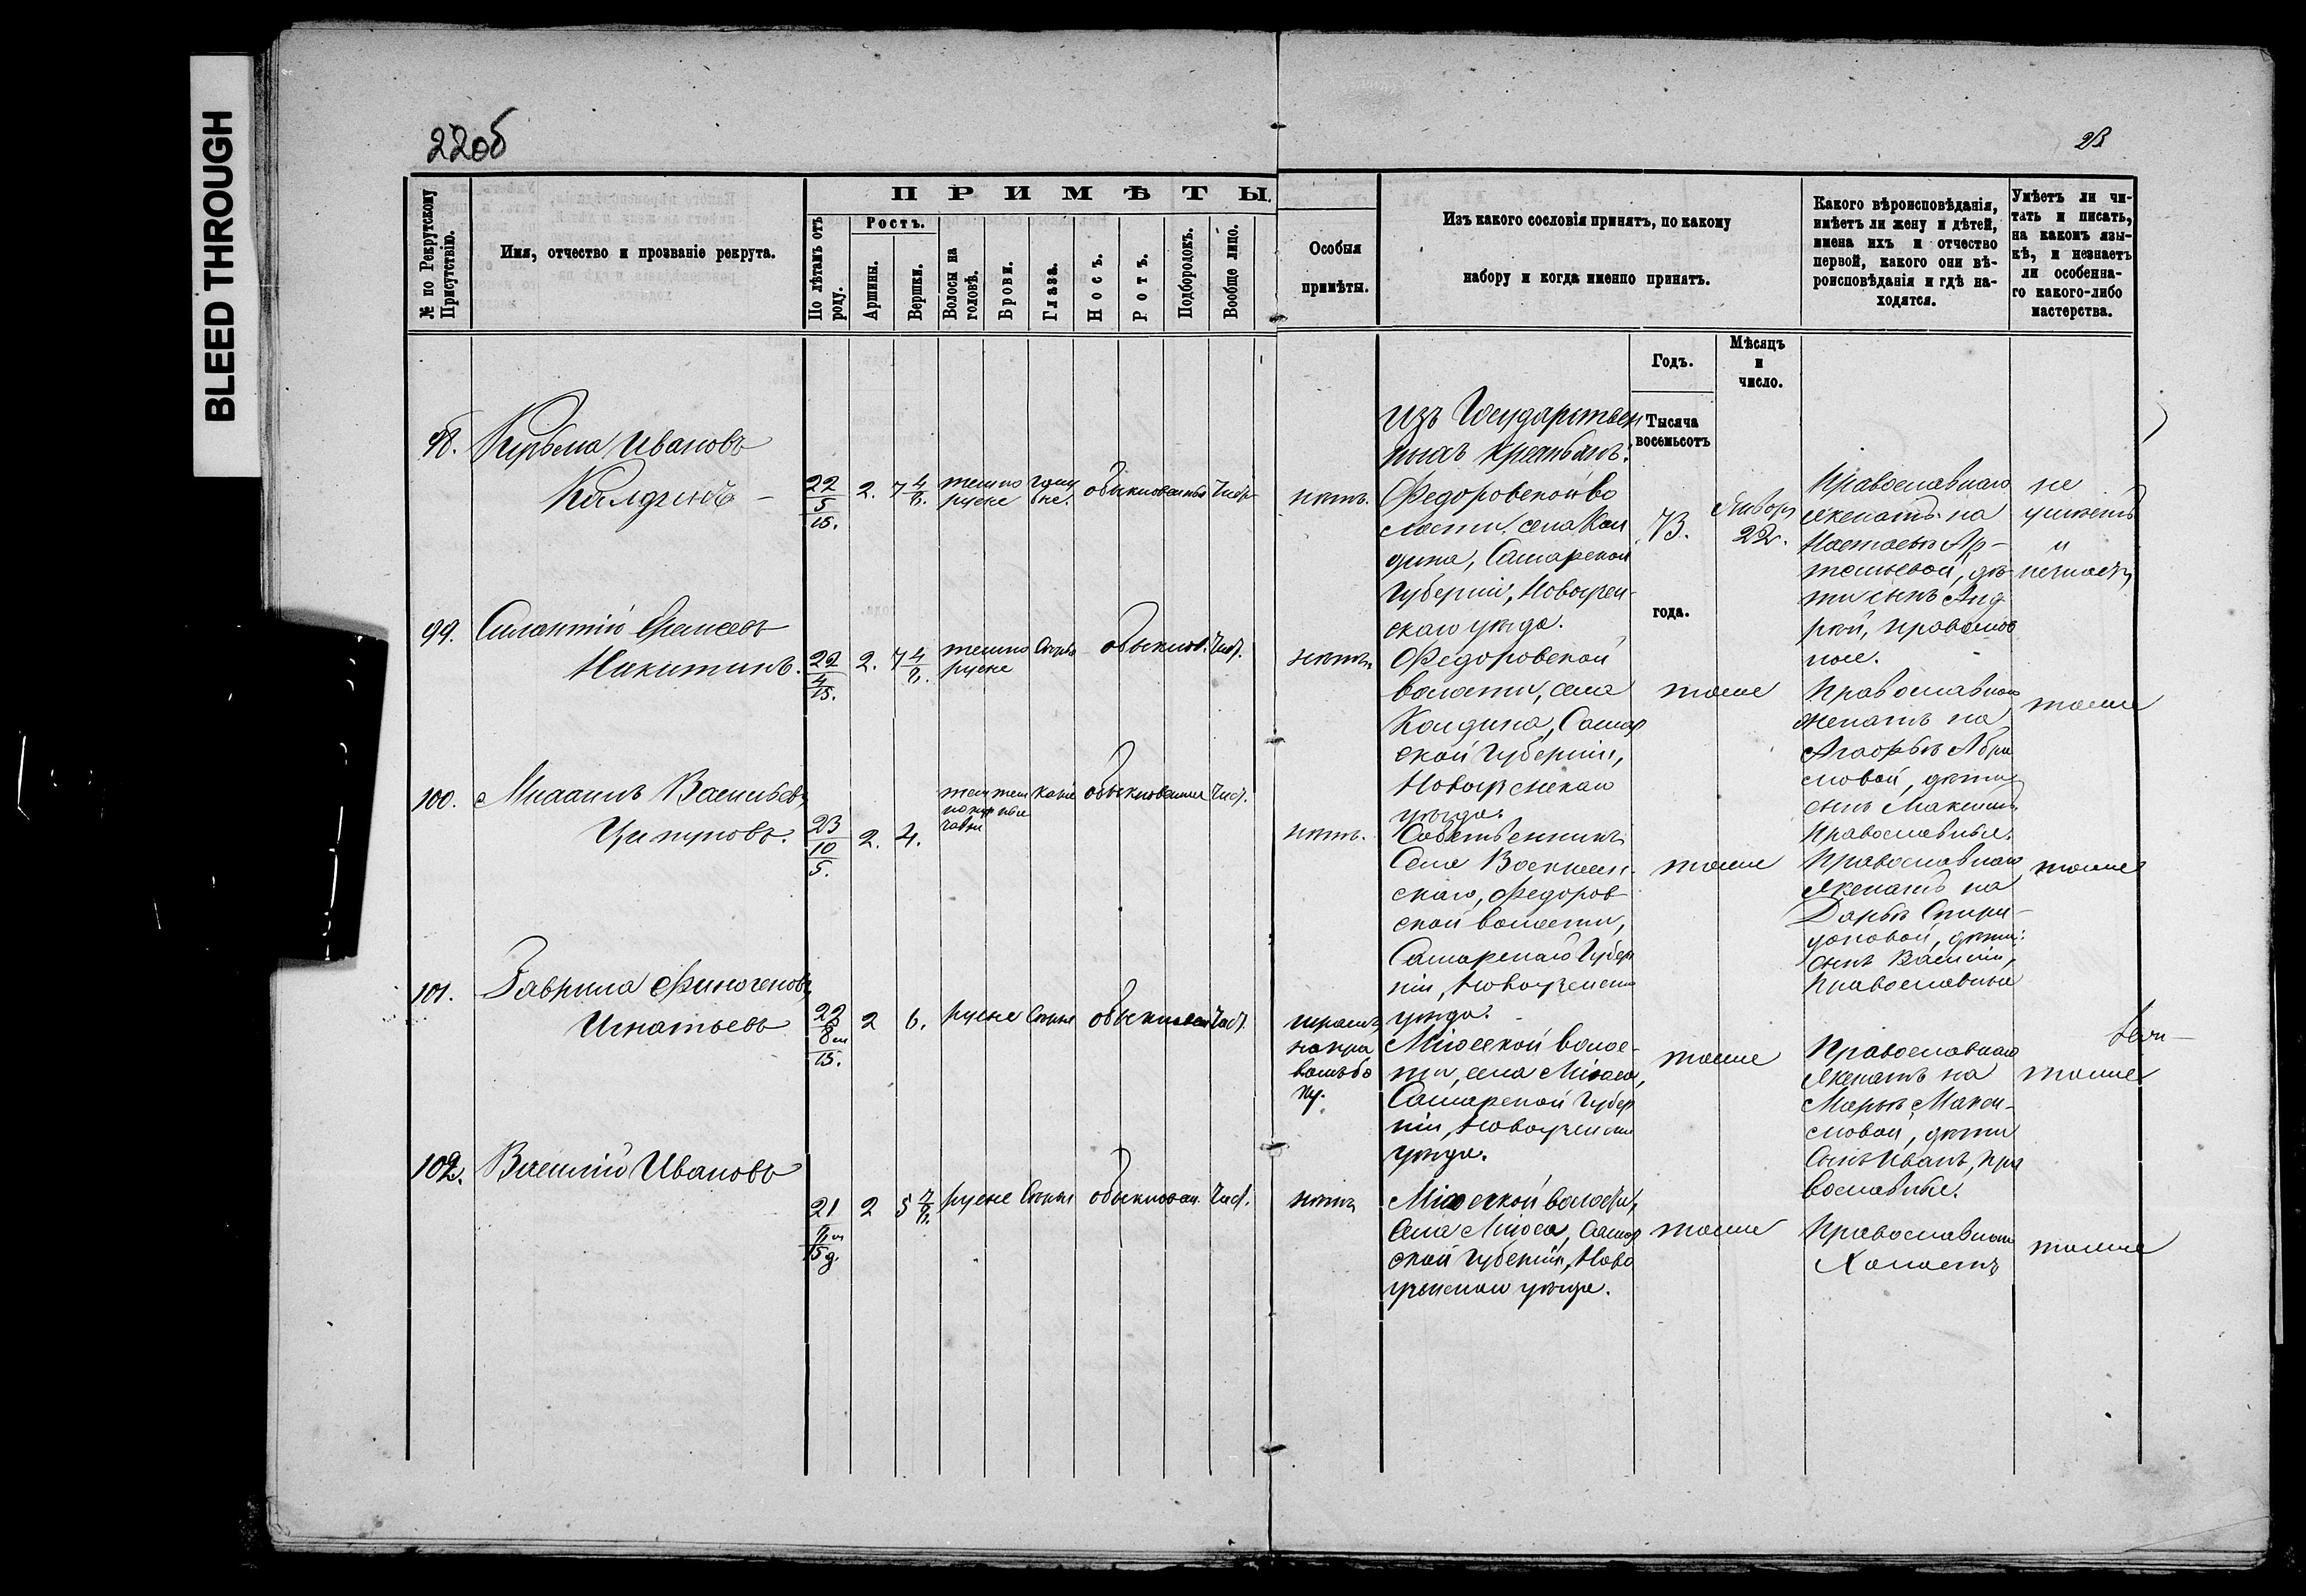 BLEED THROUGH
22об
23
№ по Рекрутскому Присутствію.
Имя, отчество и прозваніе рекрута.
ПРИМѢТЫ.
По лѣтамъ отъ роду.
Ростъ.
Аршины.
Вершки.
Волосы на головѣ.
Брови.
Глаза.
Носъ.
Ротъ.
Подбородокъ.
Вообще лицо.
Особыя
примѣты.
Изъ какого сословія принятъ, по какому
набору и когда именно принятъ.
Какого вѣроисповѣданія,
имѣетъ ли жену и дѣтей,
имена ихъ и отчество
первой, какого они вѣ-
роисповѣданія и гдѣ на-
ходятся.
Умѣетъ ли чи-
тать и писать,
на какомъ язы-
кѣ, и незнаетъ
ли особенна-
го какого-либо
мастерства.
Годъ.
Мѣсяцъ
и
число.
Тысяча
восемьсотъ
98.
Ивановъ
22 5/15.
2.
7 4/8.
темно
русые
обыкновенный
Чист.
нѣтъ.
Изъ Государствен
ныхъ крестьянъ:
Федоровской во
лости, села Кал
дина, Самарской
Губерніи, Новоузен-
скаго уѣзда.
73.
Января
22.
года.
Православнаго
Женатъ на
Настасьѣ Ар-
темьевой, дѣ-
ти сынъ Анд
рей, православ
ное.
не
умѣетъ
и
незнаетъ
99.
Силантій Еремеевъ
Никитинъ.
22 4/15.
2.
7 4/8.
темно
русые
Сѣрые
обыкнов.
Чист.
нѣтъ
Федоровской
волости, села
Калдина, Самар
ской Губерніи,
Новоузенскаго
уѣзда.
тоже
Православнаго
женатъ на
Агафьѣ Абра
мовой, дѣти
сынъ Максимъ
Православные.
тоже
100.
Михаилъ Васильевъ
23 10/5.
2.
4.
каріе
обыкновенные
Чист.
нѣтъ.
Собственникъ
Села Воскресен-
скаго, Федоров-
ской волости,
Самарской Губер
ніи, Новоузенскаго
уѣзда.
тоже
Православнаго
Женатъ на
Дарьѣ Спири-
доновой, дѣти:
сынъ Василій,
Православные
тоже
101.
Гаврила Финогеновъ
Игнатьевъ
22 8 м/15.
2
6.
русые
Сѣрые
обыкновен
Чист.
шрамъ
на пра
вомъ бо
ку.
Міюсской волос-
ти, села Міюса,
Самарской Губер
ніи, Новоузенскаго
уѣзда.
тоже
Православнаго
Женатъ на
Марьѣ Макси-
мовой, дѣти
Сынъ Иванъ, пра
вославные.
тоже
102.
Василій Ивановъ
21
15 д.
2
5 7/8.
русые
Сѣрые
обыкновен.
Чист.
нѣтъ
Міюсской волости,
Села Міюса, Самар
ской Губерніи, Ново
узенскаго уѣзда.
тоже
Православнаго
Холостъ
тоже